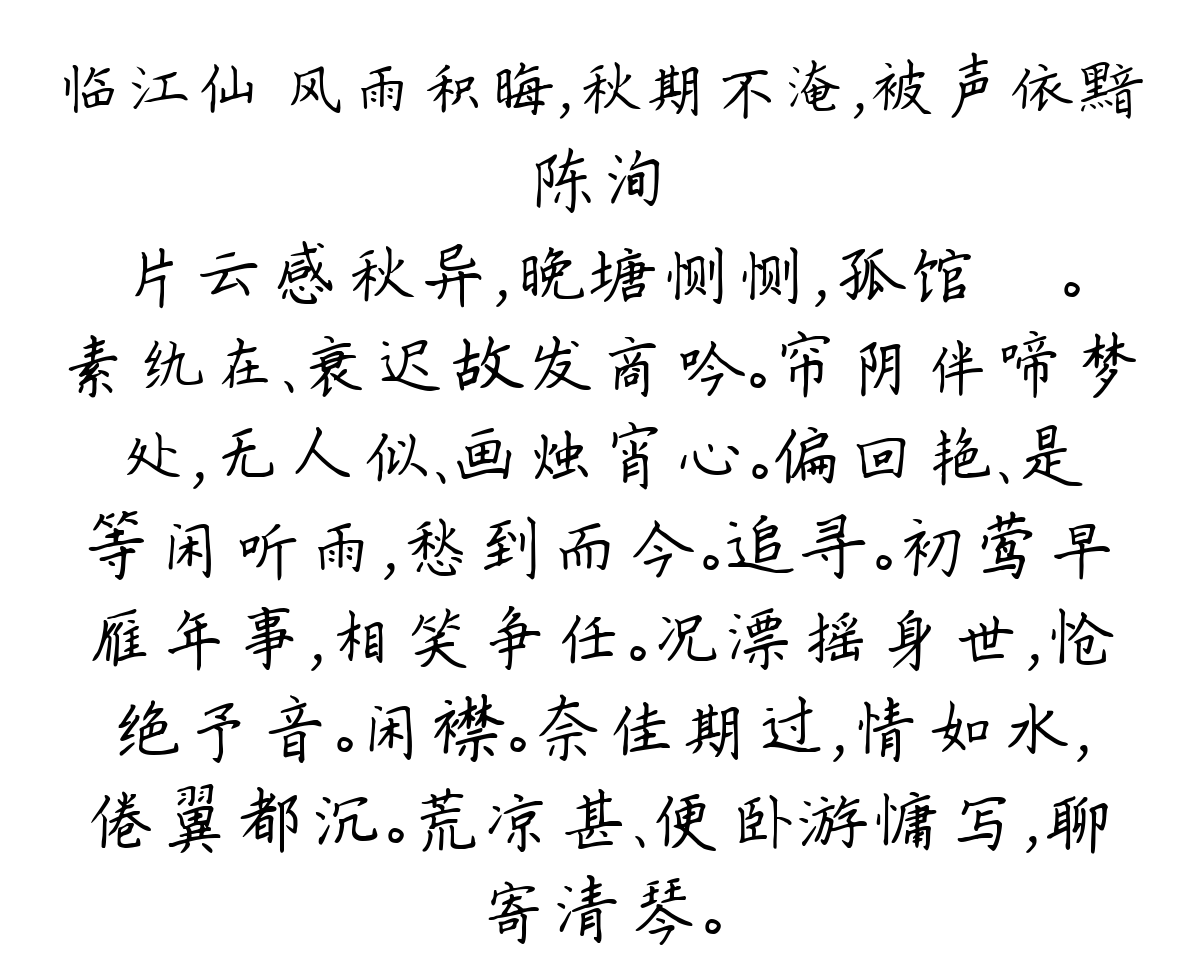 临江仙 风雨积晦,秋期不淹,被声依黯
陈洵
片云感秋异,晚塘恻恻,孤馆 。
素纨在、衰迟故发商吟。帘阴伴啼梦
处,无人似、画烛宵心。偏回艳、是
等闲听雨,愁到而今。追寻。初莺早
雁年事,相笑争任。况漂摇身世,怆
绝予音。闲襟。奈佳期过,情如水,
倦翼都沉。荒凉甚、便卧游慵写,聊
寄清琴。